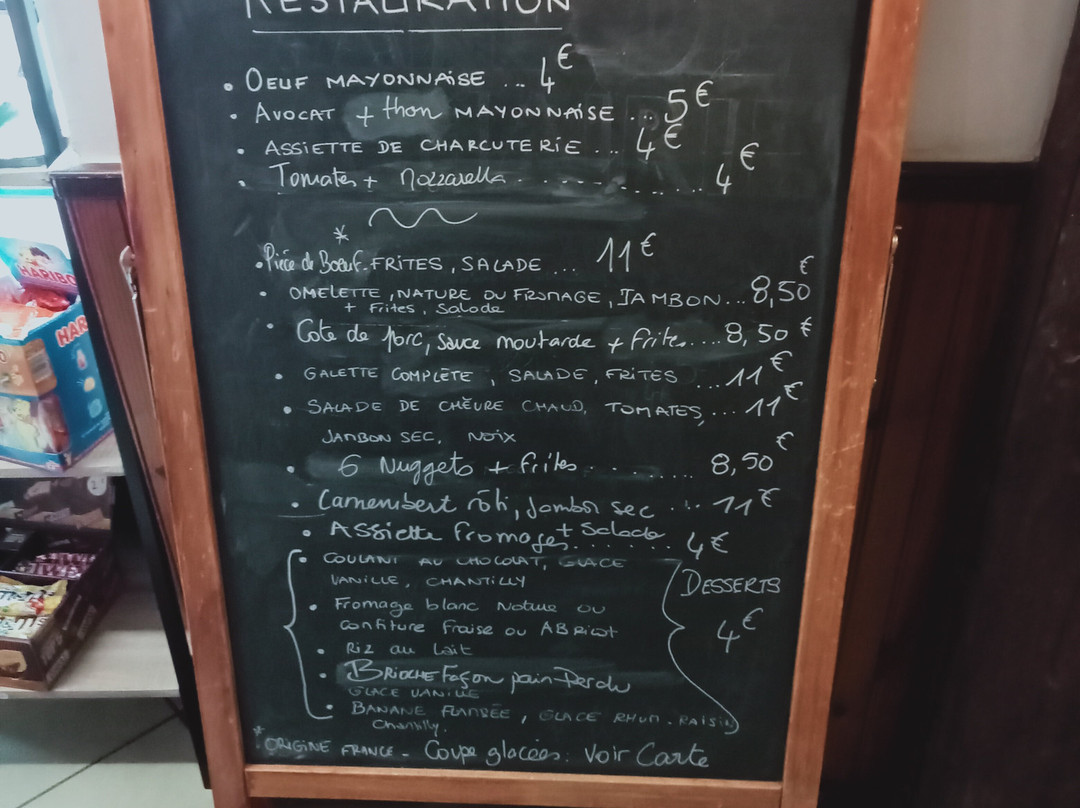 RESTAURATION
• OEUF MAYONNAISE ... 4€
• AVOCAT + thon MAYONNAISE ... 5€
• ASSIETTE DE CHARCUTERIE ... 4€
• Tomates + Mozzarella ........... 4€
*
• Pièce de Boeuf. FRITES, SALADE ... 11€
• OMELETTE, NATURE OU FROMAGE, JAMBON ... 8,50€
+ Frites, Salade
• Cote de porc, sauce moutarde + frites .... 8,50 €
• GALETTE COMPLÈTE, SALADE, FRITES ... 11€
• SALADE DE CHÈVRE CHAUD, TOMATES, ... 11€
JAMBON SEC, NOIX
• 6 Nuggets + frites ......... 8,50€
• Camembert rôti, Jambon sec ... 11€
+ Salade
• Assiette fromages ........ 4€
• COULANT AU CHOCOLAT, GLACE
VANILLE, CHANTILLY
DESSERTS
4€
• Fromage blanc Nature ou
confiture fraise ou ABricot
• Riz au lait
• BRIOCHE Façon pain Perdu
GLACE VANILLE
• BANANE FLAMBÉE, GLACE RHUM-RAISIN
Chantilly.
* ORIGINE FRANCE - Coupe glacées : Voir Carte
HARIBO
HAR